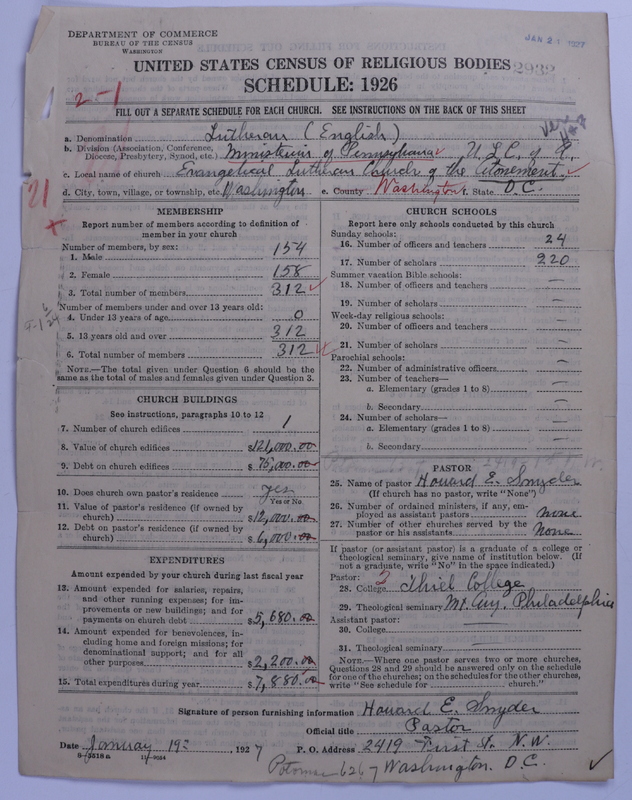 DEPARTMENT OF COMMERCE
BUREAU OF THE CENSUS
WASHINGTON
JAN 21 1927
UNITED STATES CENSUS OF RELIGIOUS BODIES
2932
SCHEDULE: 1926
2-1
FILL OUT A SEPARATE SCHEDULE FOR EACH CHURCH. SEE INSTRUCTIONS ON THE BACK OF THIS SHEET
a. Denomination Lutheran (English)
b. Division (Association, Conference, Diocese, Presbytery, Synod, etc.) Ministerium of Pennsylvania U.L.C. of A.
c. Local name of church Evangelical Lutheran Church of the Atonement.
d. City, town, village, or township, etc. Washington e. County Washington f. State D.C.
21
MEMBERSHIP
Report number of members according to definition of member in your church
Number of members, by sex:
1. Male 154
2. Female 158
3. Total number of members 312
Number of members under and over 13 years old:
4. Under 13 years of age 0
5. 13 years old and over 312
6. Total number of members 312
NOTE.—The total given under Question 6 should be same as the total of males and females given under Question 3.
CHURCH BUILDINGS
See instructions, paragraphs 10 to 12
7. Number of church edifices 1
8. Value of church edifices $121,000.00
9. Debt on church edifices $75,000.00
10. Does church own pastor's residence yes
Yes or No
11. Value of pastor's residence (if owned by church) $12,000.00
12. Debt on pastor's residence (if owned by church) $6,000.00
EXPENDITURES
Amount expended by your church during last fiscal year
13. Amount expended for salaries, repairs, and other running expenses; for improvements or new buildings; and for payments on church debt $5,680.00
14. Amount expended for benevolences, including home and foreign missions; for denominational support; and for all other purposes $2,200.00
15. Total expenditures during year $7,880.00
CHURCH SCHOOLS
Report here only schools conducted by this church
Sunday schools:
16. Number of officers and teachers 24
17. Number of scholars 220
Summer vacation Bible schools:
18. Number of officers and teachers —
19. Number of scholars —
Week-day religious schools:
20. Number of officers and teachers —
21. Number of scholars —
Parochial schools:
22. Number of administrative officers —
23. Number of teachers—
a. Elementary (grades 1 to 8) —
b. Secondary —
24. Number of scholars—
a. Elementary (grades 1 to 8) —
b. Secondary —
PASTOR
25. Name of pastor Howard E. Snyder
(If church has no pastor, write "None")
26. Number of ordained ministers, if any, employed as assistant pastors none
27. Number of other churches served by the pastor or his assistants None
If pastor (or assistant pastor) is a graduate of a college or theological seminary, give name of institution below. (If not a graduate, write "No" in the space indicated.)
Pastor: 3
28. College Thiel College
29. Theological seminary Mt. Airy, Philadelphia
Assistant pastor:
30. College —
31. Theological seminary —
NOTE.—Where one pastor serves two or more churches, Questions 28 and 29 should be answered only on the schedule for one of the churches; on the schedules for the other churches, write "See schedule for church."
Signature of person furnishing information Howard E. Snyder
Official title Pastor
Date January 19 1927 P. O. Address 2419 First St. N.W.
8-5518a 11-9054 Potomac 6267 Washington. D.C.